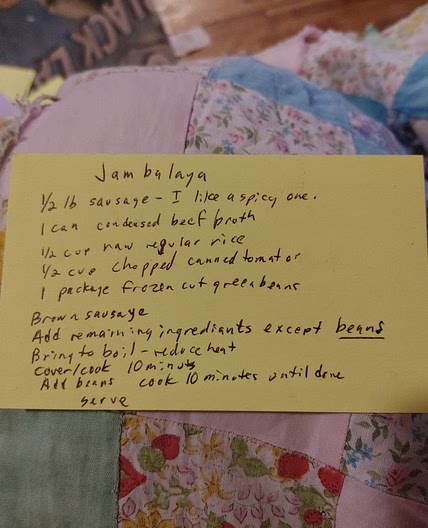 BLACK LI
Jambalaya
1/2 lb sausage - I like a spicy one.
1 can condensed beef broth
1/2 cup raw regular rice
1/2 cup chopped canned tomator
1 package frozen cut green beans
Brown sausage
Add remaining ingrediants except beans
Bring to boil - reduce heat
cover/cook 10 minuts
Add beans cook 10 minutes until done
serve